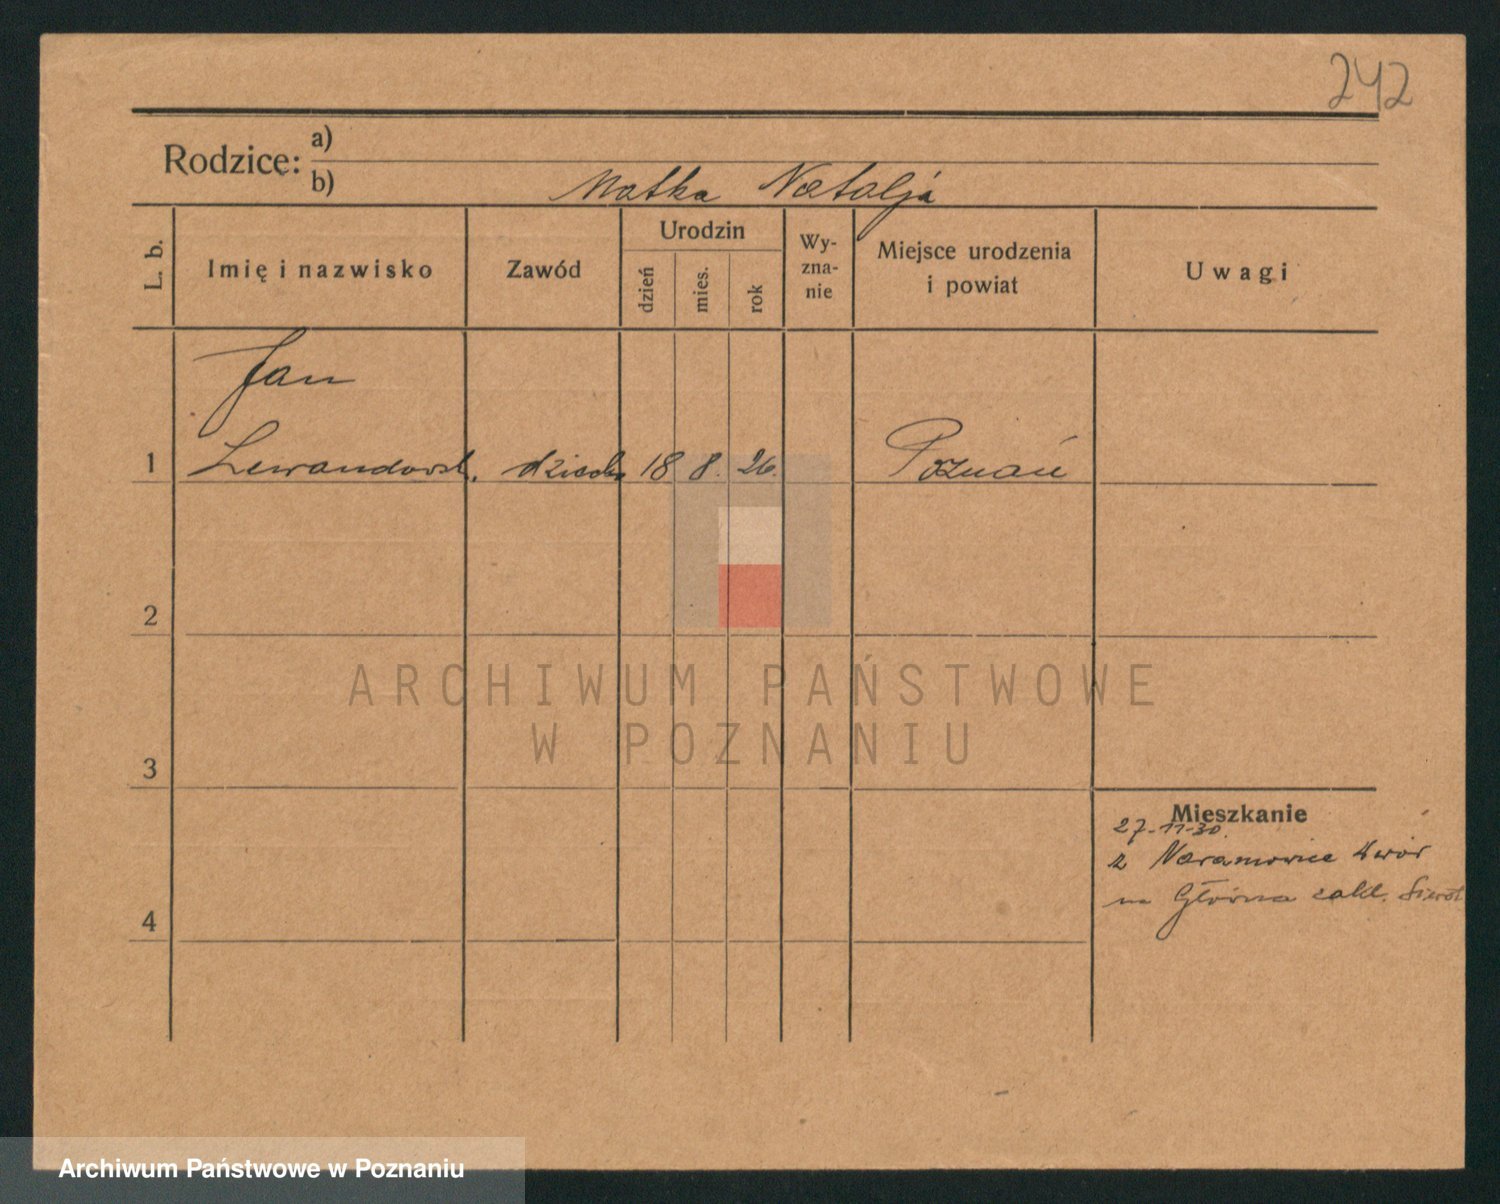 242
Rodzice:
a)
b) Matka Natalja
L. b.
Imię i nazwisko
Zawód
Urodzin
dzień
mies.
rok
Wy-
zna-
nie
Miejsce urodzenia
i powiat
Uwagi
Jan
1 Lewandowsk. dziecko 18 8. 26. Poznań
2
3
4
Mieszkanie
27-11-30.
z Naramowice dwór
na Główna zakł. Sierot
ARCHIWUM PAŃSTWOWE
W POZNANIU
Archiwum Państwowe w Poznaniu